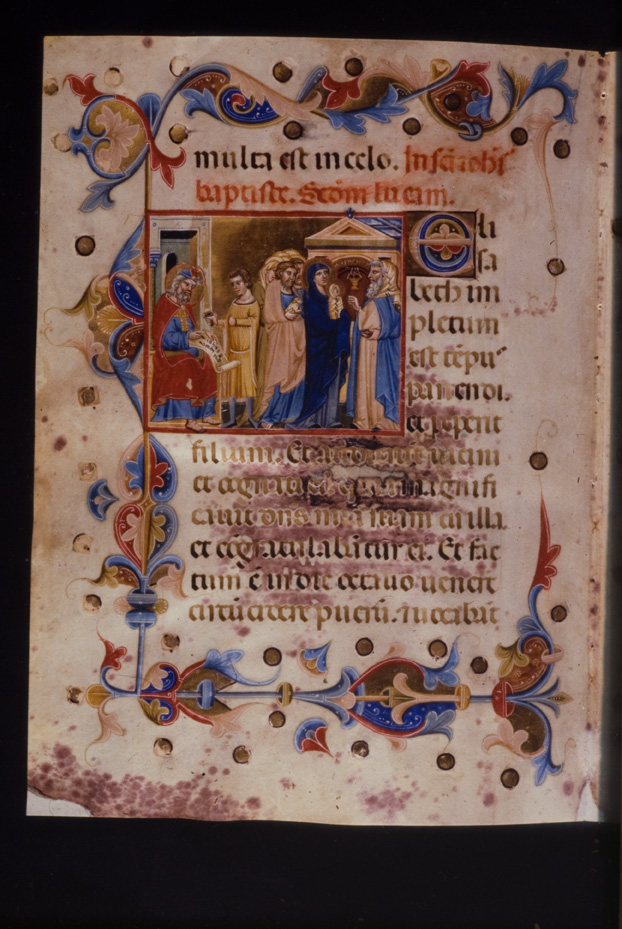 multa est in celo. In sci̅ ioh̅is
baptiste. Scd̅m lucam.
Eli
sa
beth im
pletum
est te̅pus
pariendi.
et peperit
filium. Et audierunt uicini
et cognati ei' quia magnifi
cauit dn̅s mi̅am suam cu̅ illa
et co̅gratulaba̅tur ei. Et fac
tum e̅ in die octauo uenerunt
circu̅cidere pueru̅. ⁊ uocaba̅t